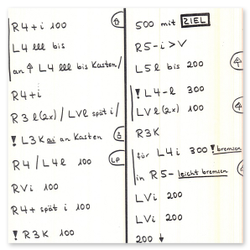 R4+i 100
L4 lll bis
an 4 L4 lll bis Kasten/
R4+i
R3 l(2x) / LVl spät i/
! L3K an Kasten
R4 / L4l 100
RVi 100
R4+ spät i 100
! R3K 100
500 mit ZIEL
R5-i > V
L5l bis 200
! L4-l 300
LVl (2x) 100
R3K
für L4i 300 ! bremsen
in R5- leicht bremsen
LVi 200
LVi 200
200